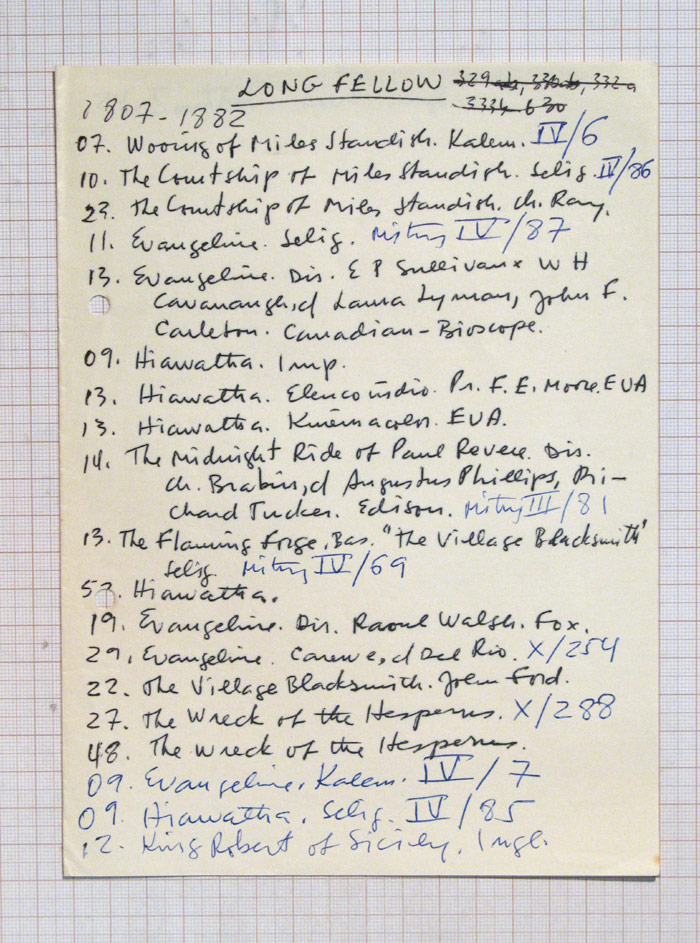 LONGFELLOW 329 ab, 330 ab, 332 a
1807-1882 333b. 630
07. Wooing of Miles Standish. Kalem. IV/6
10. The Courtship of Miles Standish. Selig. IV/86
23. The Courtship of Miles Standish. Ch. Ray.
11. Evangeline. Selig. Mitry IV/87
13. Evangeline. Dir. E P Sullivan x W H
Cavanaugh, d Laura Lyman, John F.
Carleton. Canadian-Bioscope.
09. Hiawatha. Imp.
13. Hiawatha. Elenco índio. Pr. F. E. Moore. EUA
13. Hiawatha. Kinemacolor. EUA.
14. The Midnight Ride of Paul Revere. Dir.
Ch. Brabin, d Augustus Phillips, Ri-
chard Tucker. Edison. Mitry III/81
13. The Flaming Forge. Bas. "The Village Blacksmith"
Selig. Mitry IV/69
52. Hiawatha.
19. Evangeline. Dir. Raoul Walsh. Fox.
29. Evangeline. Carewe, d Del Rio. X/254
22. The Village Blacksmith. John Ford.
27. The Wreck of the Hesperus. X/288
48. The Wreck of the Hesperus.
09. Evangeline. Kalem. IV/7
09. Hiawatha. Selig. IV/85
12. King Robert of Sicily. Ingl.